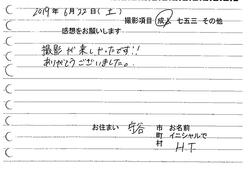 2019年 6月22日(土)
撮影項目 成人 七五三 その他
感想をお願いします
撮影が楽しかったです!!
ありがとうございました。
お住まい 守谷 市 町 村
お名前 イニシャルで
H.T